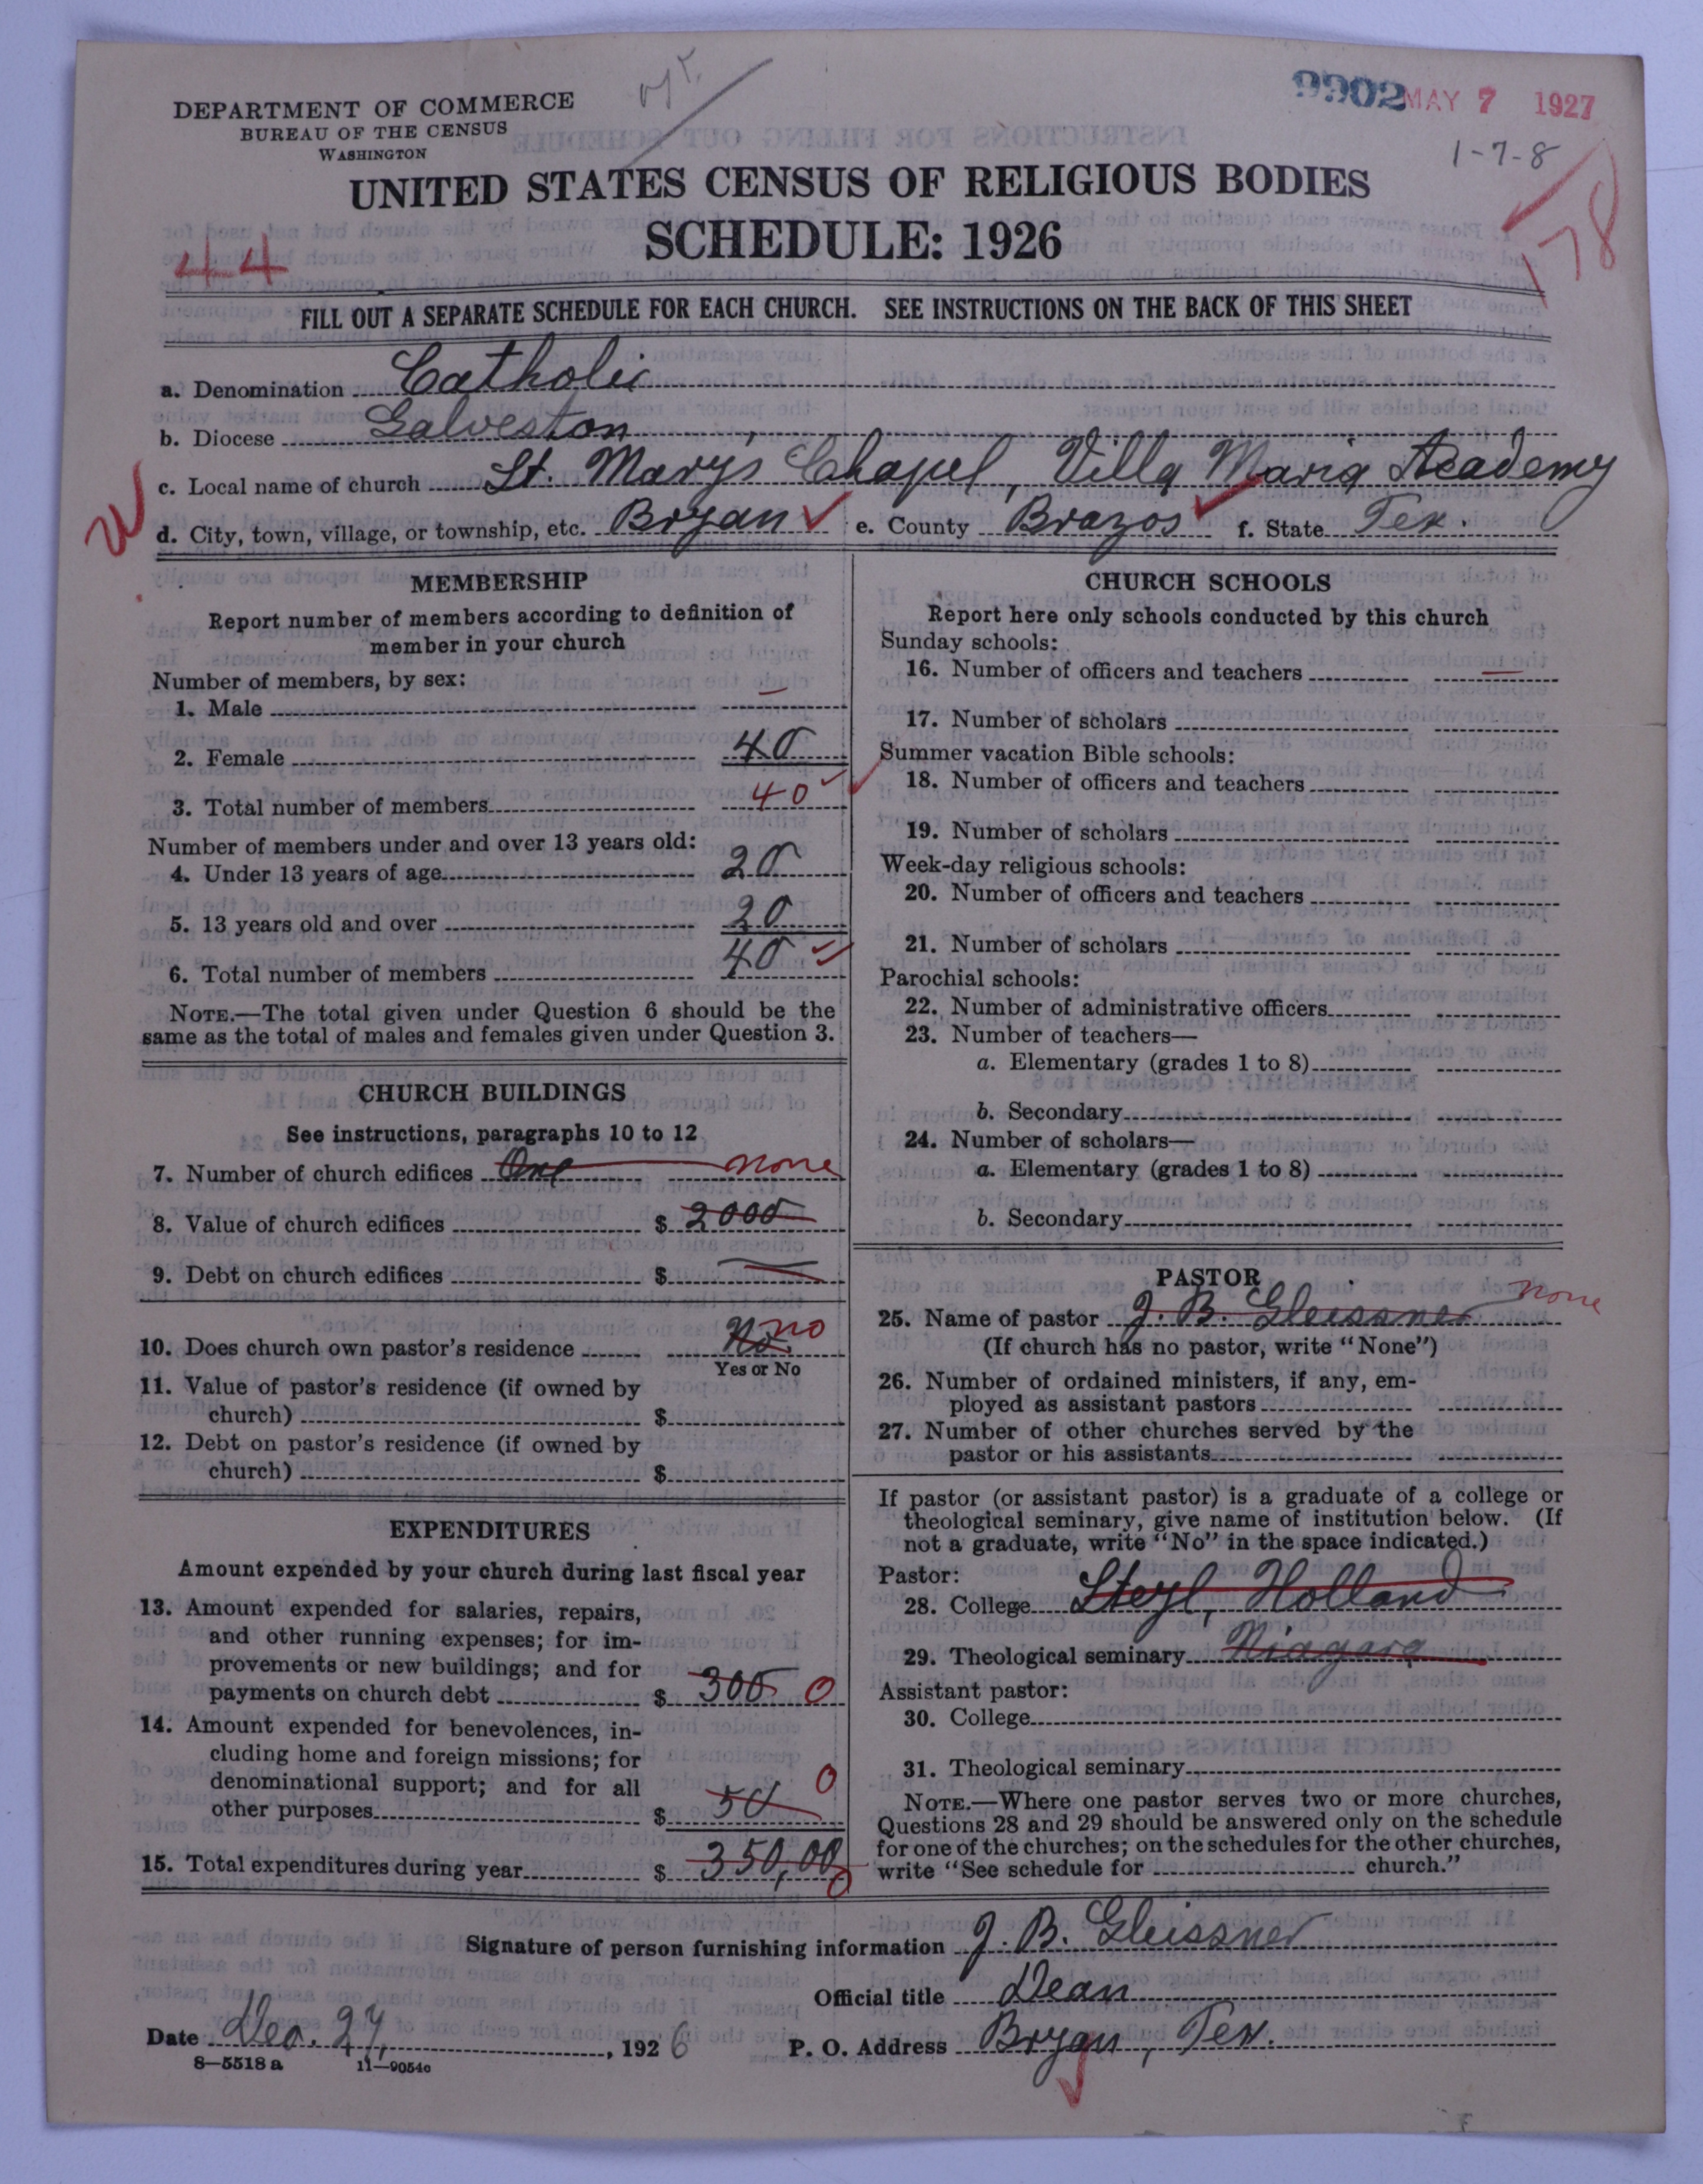 9902 MAY 7 1927
DEPARTMENT OF COMMERCE
BUREAU OF THE CENSUS
WASHINGTON
1-7-8
178
UNITED STATES CENSUS OF RELIGIOUS BODIES
SCHEDULE: 1926
44
FILL OUT A SEPARATE SCHEDULE FOR EACH CHURCH. SEE INSTRUCTIONS ON THE BACK OF THIS SHEET
a. Denomination Catholic
b. Diocese Galveston
c. Local name of church St. Mary's Chapel, Villa Maria Academy
d. City, town, village, or township, etc. Bryan e. County Brazos f. State Tex.
MEMBERSHIP
Report number of members according to definition of
member in your church
Number of members, by sex:
1. Male —
2. Female 40
3. Total number of members 40
Number of members under and over 13 years old:
4. Under 13 years of age 20
5. 13 years old and over 20
6. Total number of members 40
NOTE.—The total given under Question 6 should be the
same as the total of males and females given under Question 3.
CHURCH BUILDINGS
See instructions, paragraphs 10 to 12
7. Number of church edifices One none
8. Value of church edifices $ 2000
9. Debt on church edifices $ —
10. Does church own pastor's residence No no
Yes or No
11. Value of pastor's residence (if owned by
church) $
12. Debt on pastor's residence (if owned by
church) $
EXPENDITURES
Amount expended by your church during last fiscal year
13. Amount expended for salaries, repairs,
and other running expenses; for im-
provements or new buildings; and for
payments on church debt $ 300 0
14. Amount expended for benevolences, in-
cluding home and foreign missions; for
denominational support; and for all
other purposes $ 50 0
15. Total expenditures during year $ 350,00 0
CHURCH SCHOOLS
Report here only schools conducted by this church
Sunday schools:
16. Number of officers and teachers —
17. Number of scholars
Summer vacation Bible schools:
18. Number of officers and teachers
19. Number of scholars
Week-day religious schools:
20. Number of officers and teachers
21. Number of scholars
Parochial schools:
22. Number of administrative officers
23. Number of teachers—
a. Elementary (grades 1 to 8)
b. Secondary
24. Number of scholars—
a. Elementary (grades 1 to 8)
b. Secondary
PASTOR
25. Name of pastor J. B. Gleissner none
(If church has no pastor, write "None")
26. Number of ordained ministers, if any, em-
ployed as assistant pastors
27. Number of other churches served by the
pastor or his assistants
If pastor (or assistant pastor) is a graduate of a college or
theological seminary, give name of institution below. (If
not a graduate, write "No" in the space indicated.)
Pastor:
28. College Steyl, Holland
29. Theological seminary Niagara
Assistant pastor:
30. College
31. Theological seminary
NOTE.—Where one pastor serves two or more churches,
Questions 28 and 29 should be answered only on the schedule
for one of the churches; on the schedules for the other churches,
write "See schedule for church."
Signature of person furnishing information J. B. Gleissner
Official title Dean
Date Dec. 27, 1926 P. O. Address Bryan, Tex.
8—5518 a 11—9054c